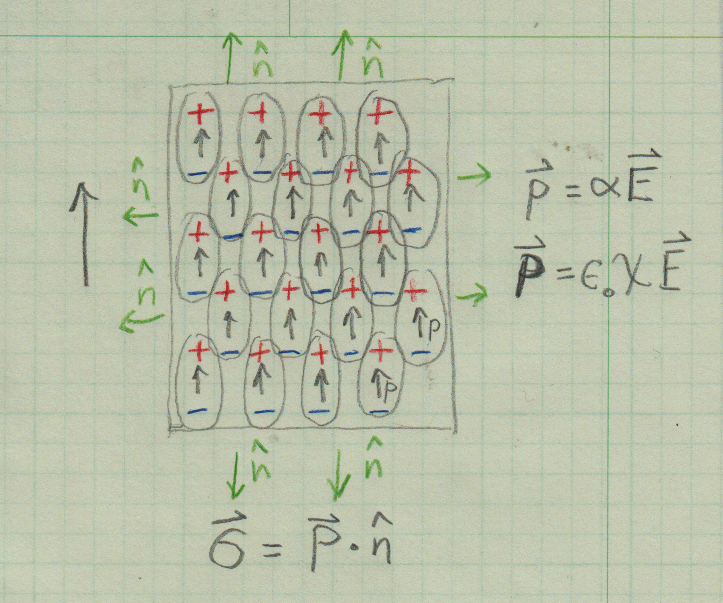 n̂ n̂
+ + + +
− + − + − + − +
n⃗
p⃗ = αE⃗
+ − + − + − + −
n⃗
P⃗ = ϵ₀χE⃗
− + − + − + − +
p
+ − + − + − + −
p
− − − −
n̂ n̂
σ⃗ = P⃗·n̂